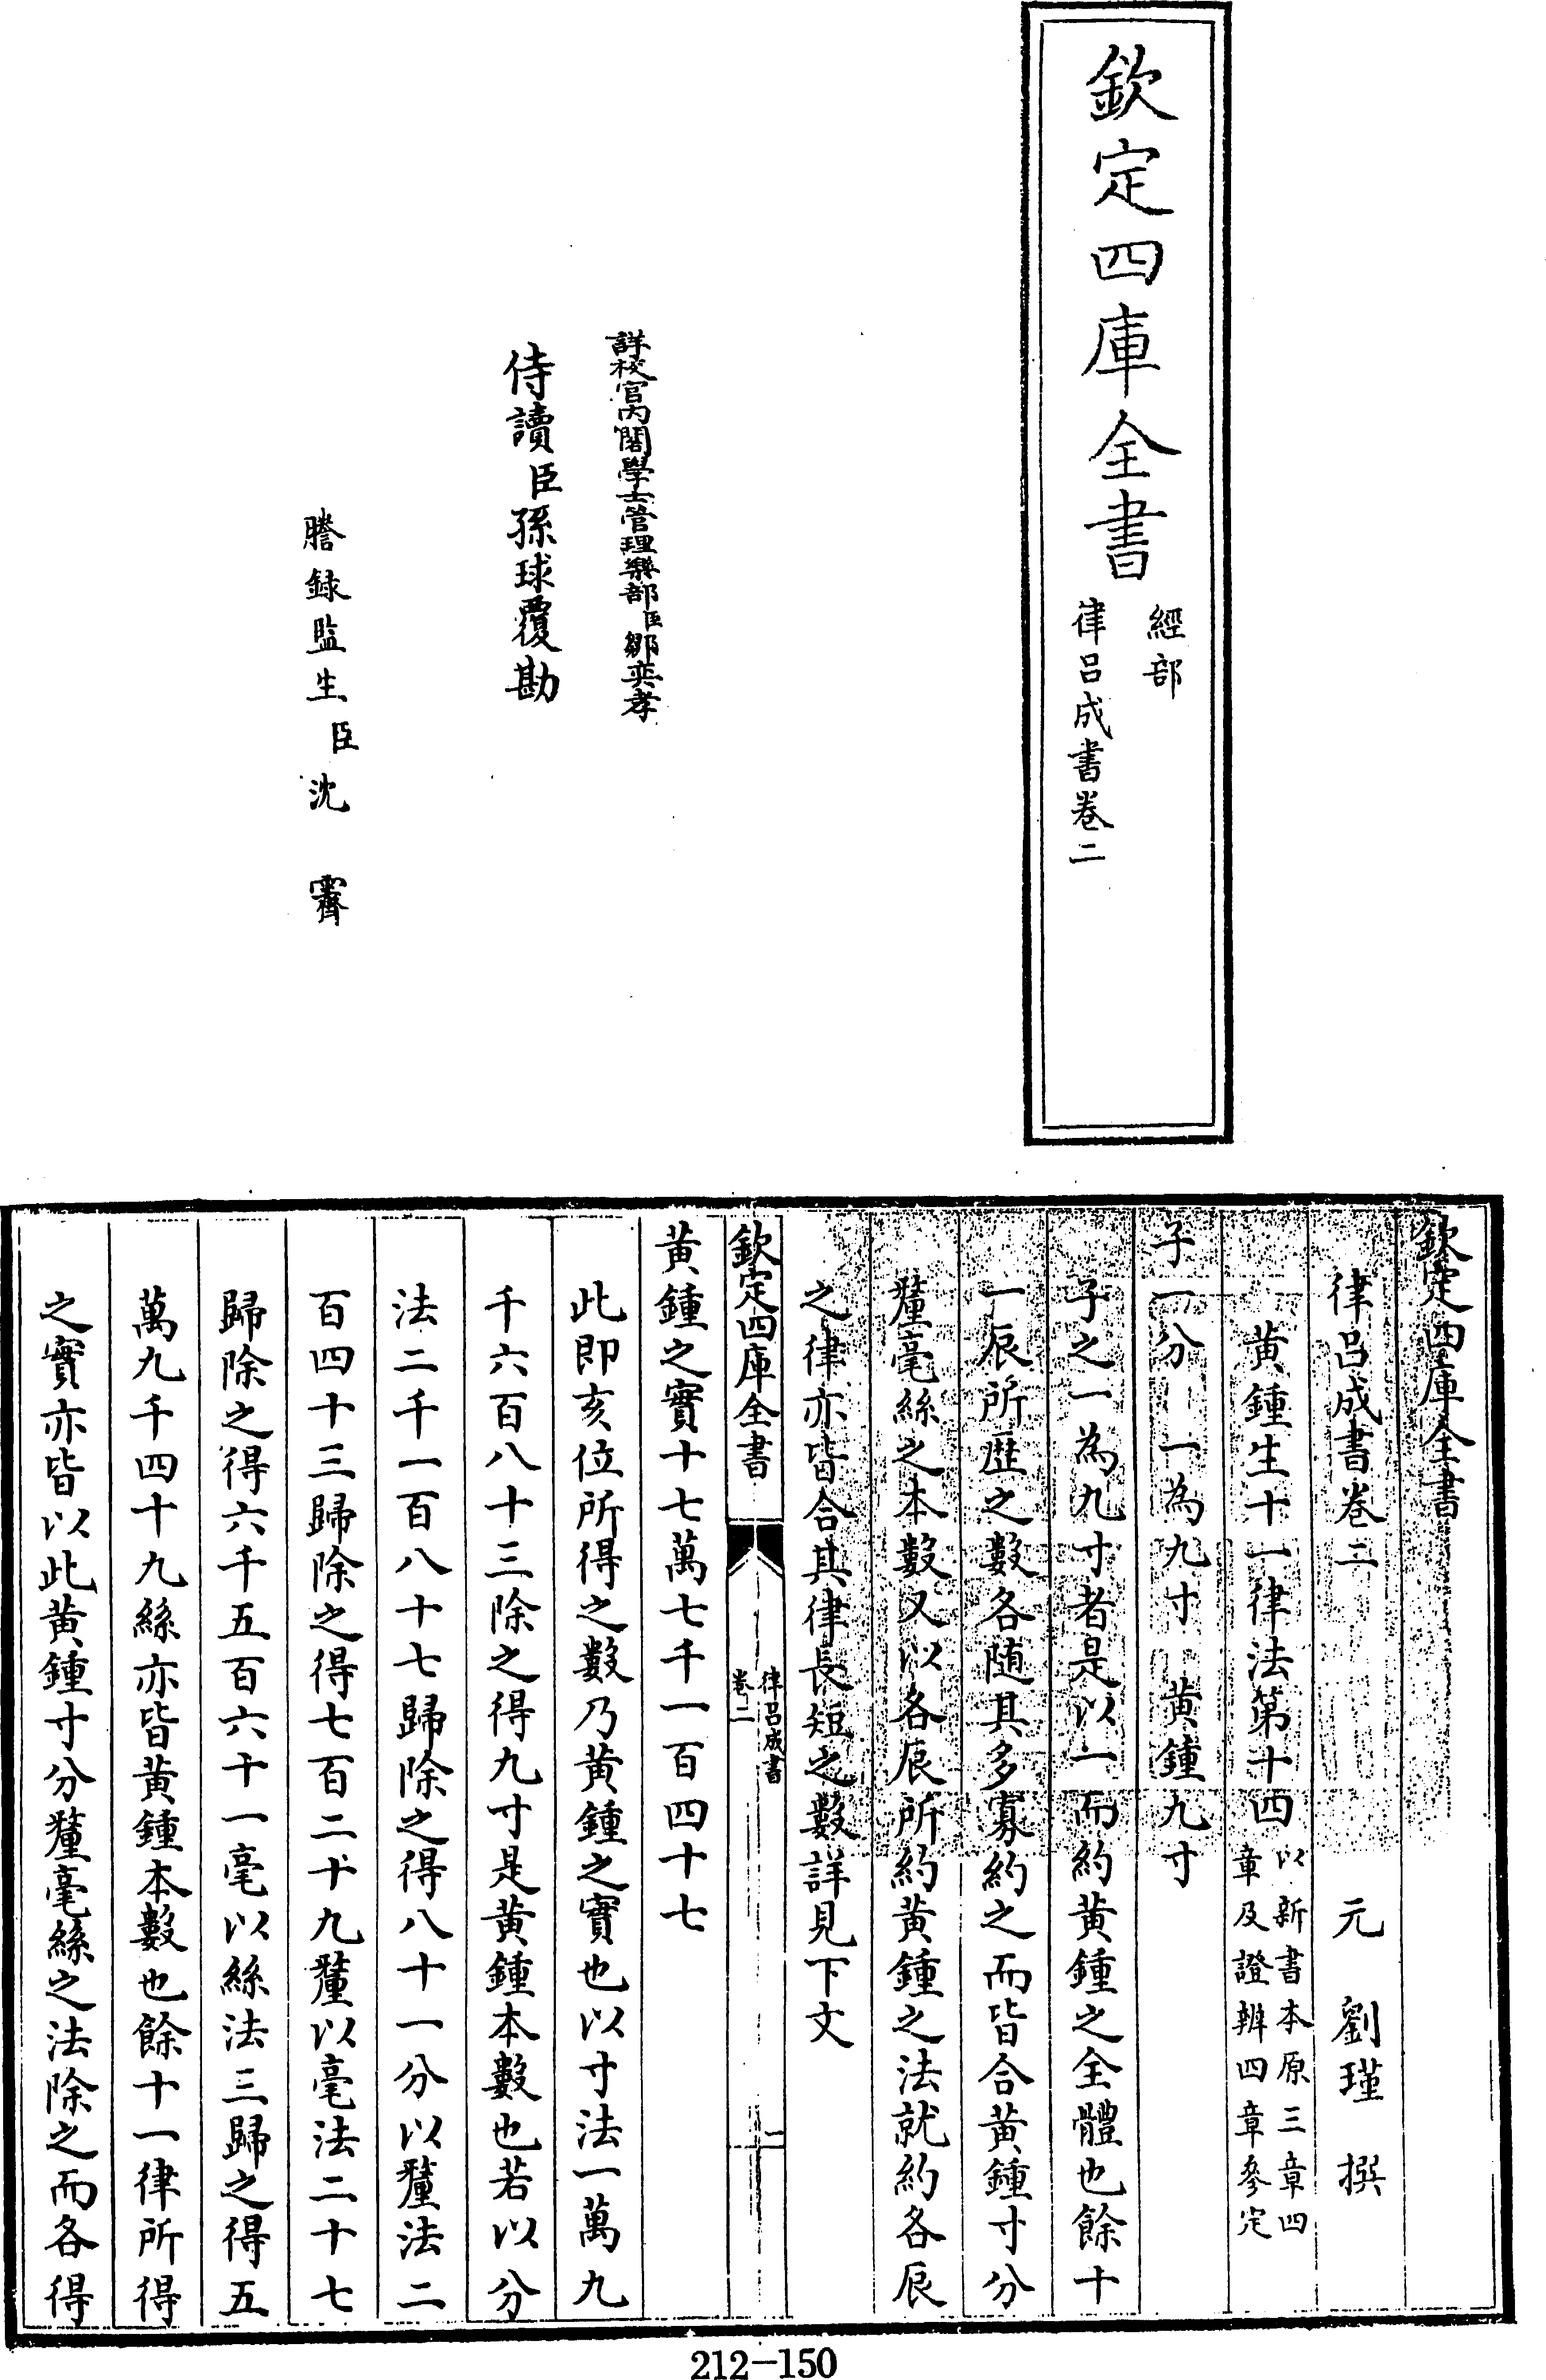 欽定四庫全書
經部
律呂成書卷二
詳校官內閣學士管理樂部臣鄒奕孝
侍讀臣孫球覆勘
謄錄監生臣沈霽
欽定四庫全書
律呂成書卷二
元 劉瑾 撰
黃鍾生十一律法第十四以新書本原三章四
章及證辨四章參定
子一分 一為九寸 黃鍾九寸
子之一為九寸者是以一而約黃鍾之全體也餘十
一辰所歷之數各隨其多寡約之而皆合黃鍾寸分
釐毫絲之本數又以各辰所約黃鍾之法就約各辰
之律亦皆合其律長短之數詳見下文
欽定四庫全書
律呂成書
卷二
二
黃鍾之實十七萬七千一百四十七
此即亥位所得之數乃黃鍾之實也以寸法一萬九
千六百八十三除之得九寸是黃鍾本數也若以分
法二千一百八十七歸除之得八十一分以釐法二
百四十三歸除之得七百二十九釐以毫法二十七
歸除之得六千五百六十一毫以絲法三歸之得五
萬九千四十九絲亦皆黃鍾本數也餘十一律所得
之實亦皆以此黃鍾寸分釐毫絲之法除之而各得
212-150